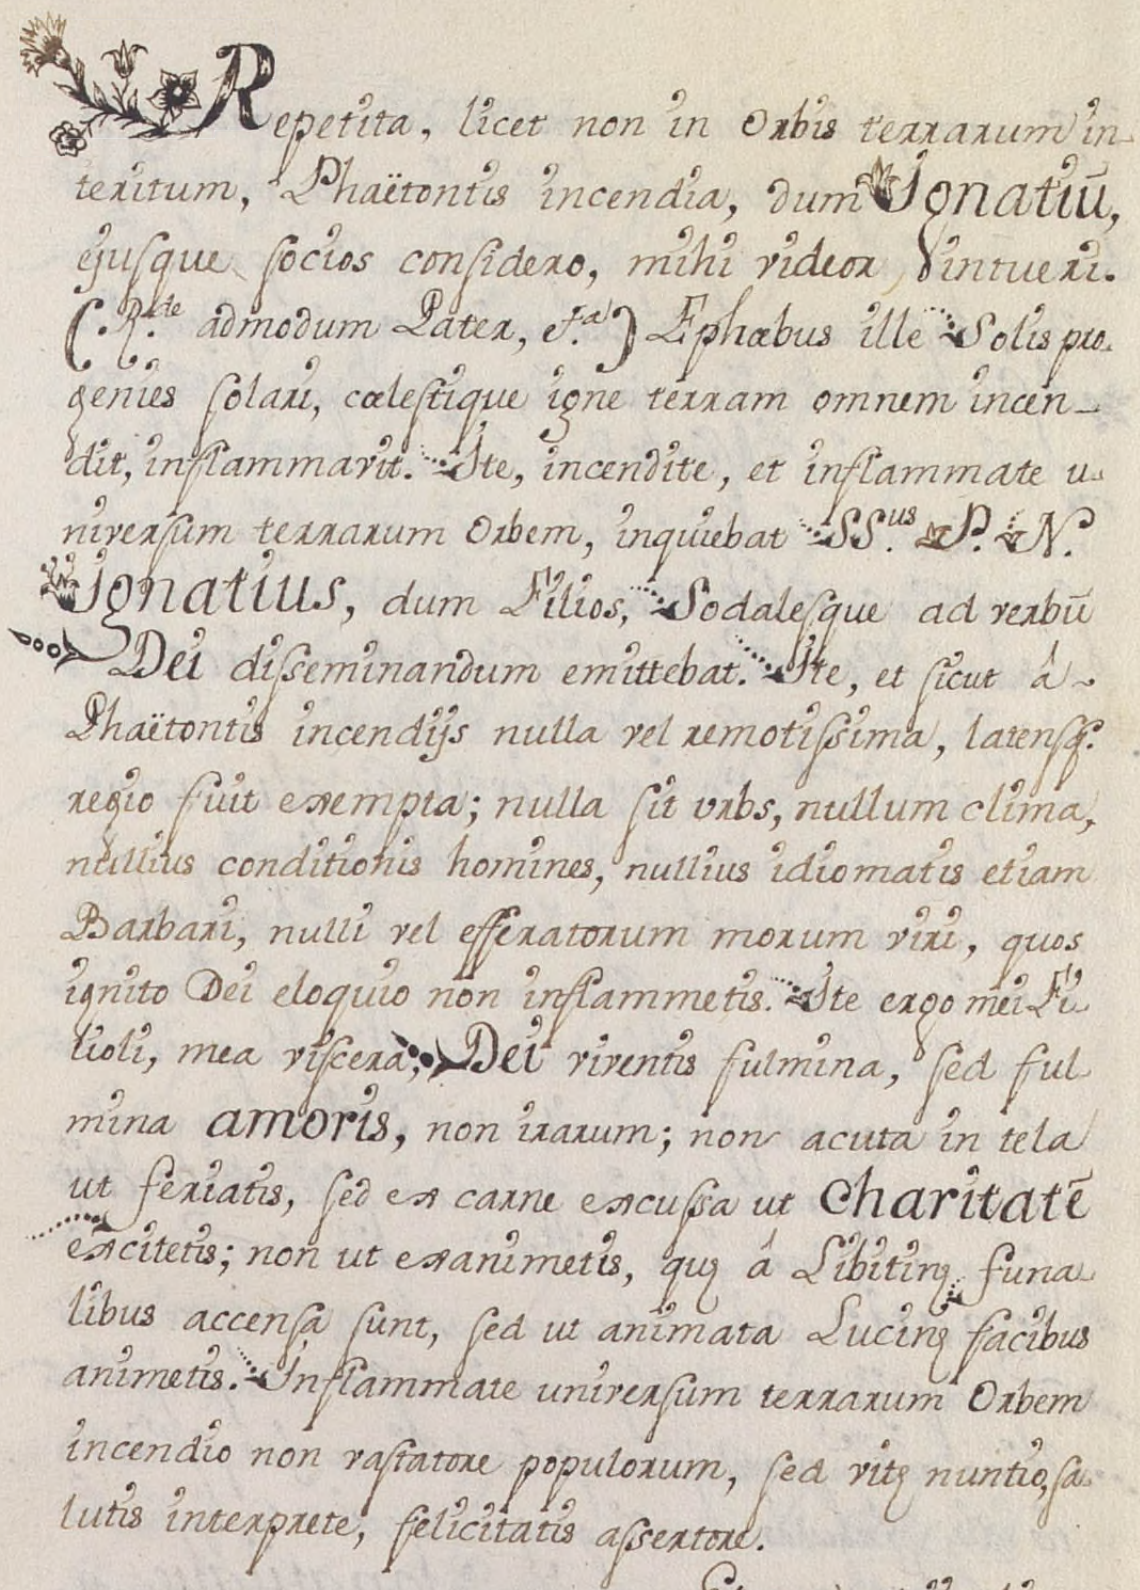 Repetita, licet non in Orbis terrarum in-
teritum, Phaëtontis incendia, dum Ignatiū,
ejusque socios considero, mihi videor intueri.
(R.de admodum Pater, &.a) Ephœbus ille Solis pro-
genies solari, cœlestique igne terram omnem incen-
dit, inflammavit. Ite, incendite, et inflammate u-
niversum terrarum Orbem, inquiebat SS.us P. N.
Ignatius, dum Filios, Sodalesque ad verbū
Dei disseminandum emittebat. Ite, et sicut â
Phaëtontis incendijs nulla vel remotissima, latensq.
regio fuit exempta; nulla sit vrbs, nullum clima,
nullius conditionis homines, nullius idiomatis etiam
Barbari, nulli vel efferatorum morum viri, quos
ignito Dei eloquio non inflammetis. Ite ergo mei Fi-
lioli, mea viscera, Dei viventis fulmina, sed ful-
mina amoris, non irarum; non acuta in tela
ut feriatis, sed ex carne excussa ut charitatē
excitetis; non ut exanimetis, quę â Libitinę funa-
libus accensa sunt, sed ut animata Lucinę facibus
animetis. Inflammate universum terrarum Orbem
incendio non vastatore populorum, sed vitę nuntio, sa-
lutis interprete, felicitatis assertore.